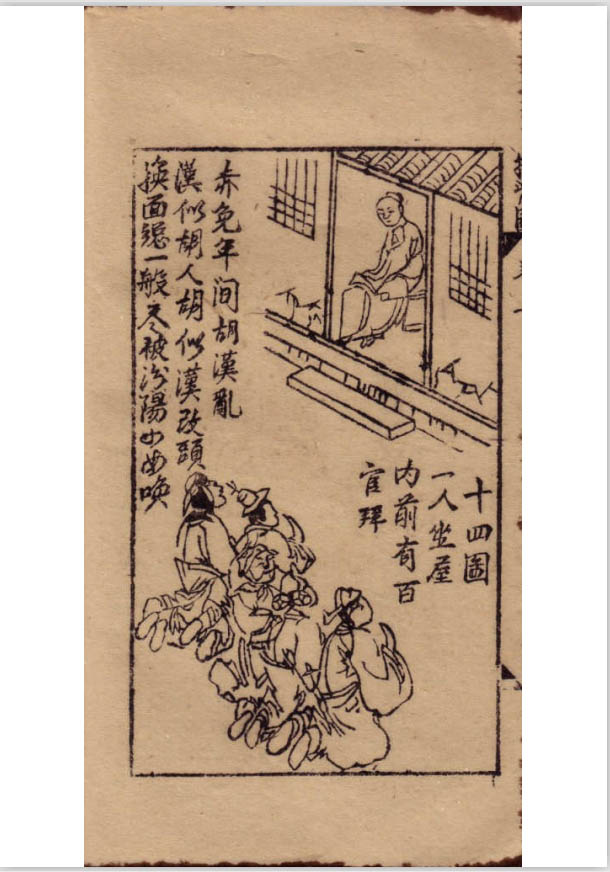 十四圖
一人坐屋
内前有百
官拜
赤兔年间胡漢亂
漢似胡人胡似漢改頭
換面總一般尽被汾陽